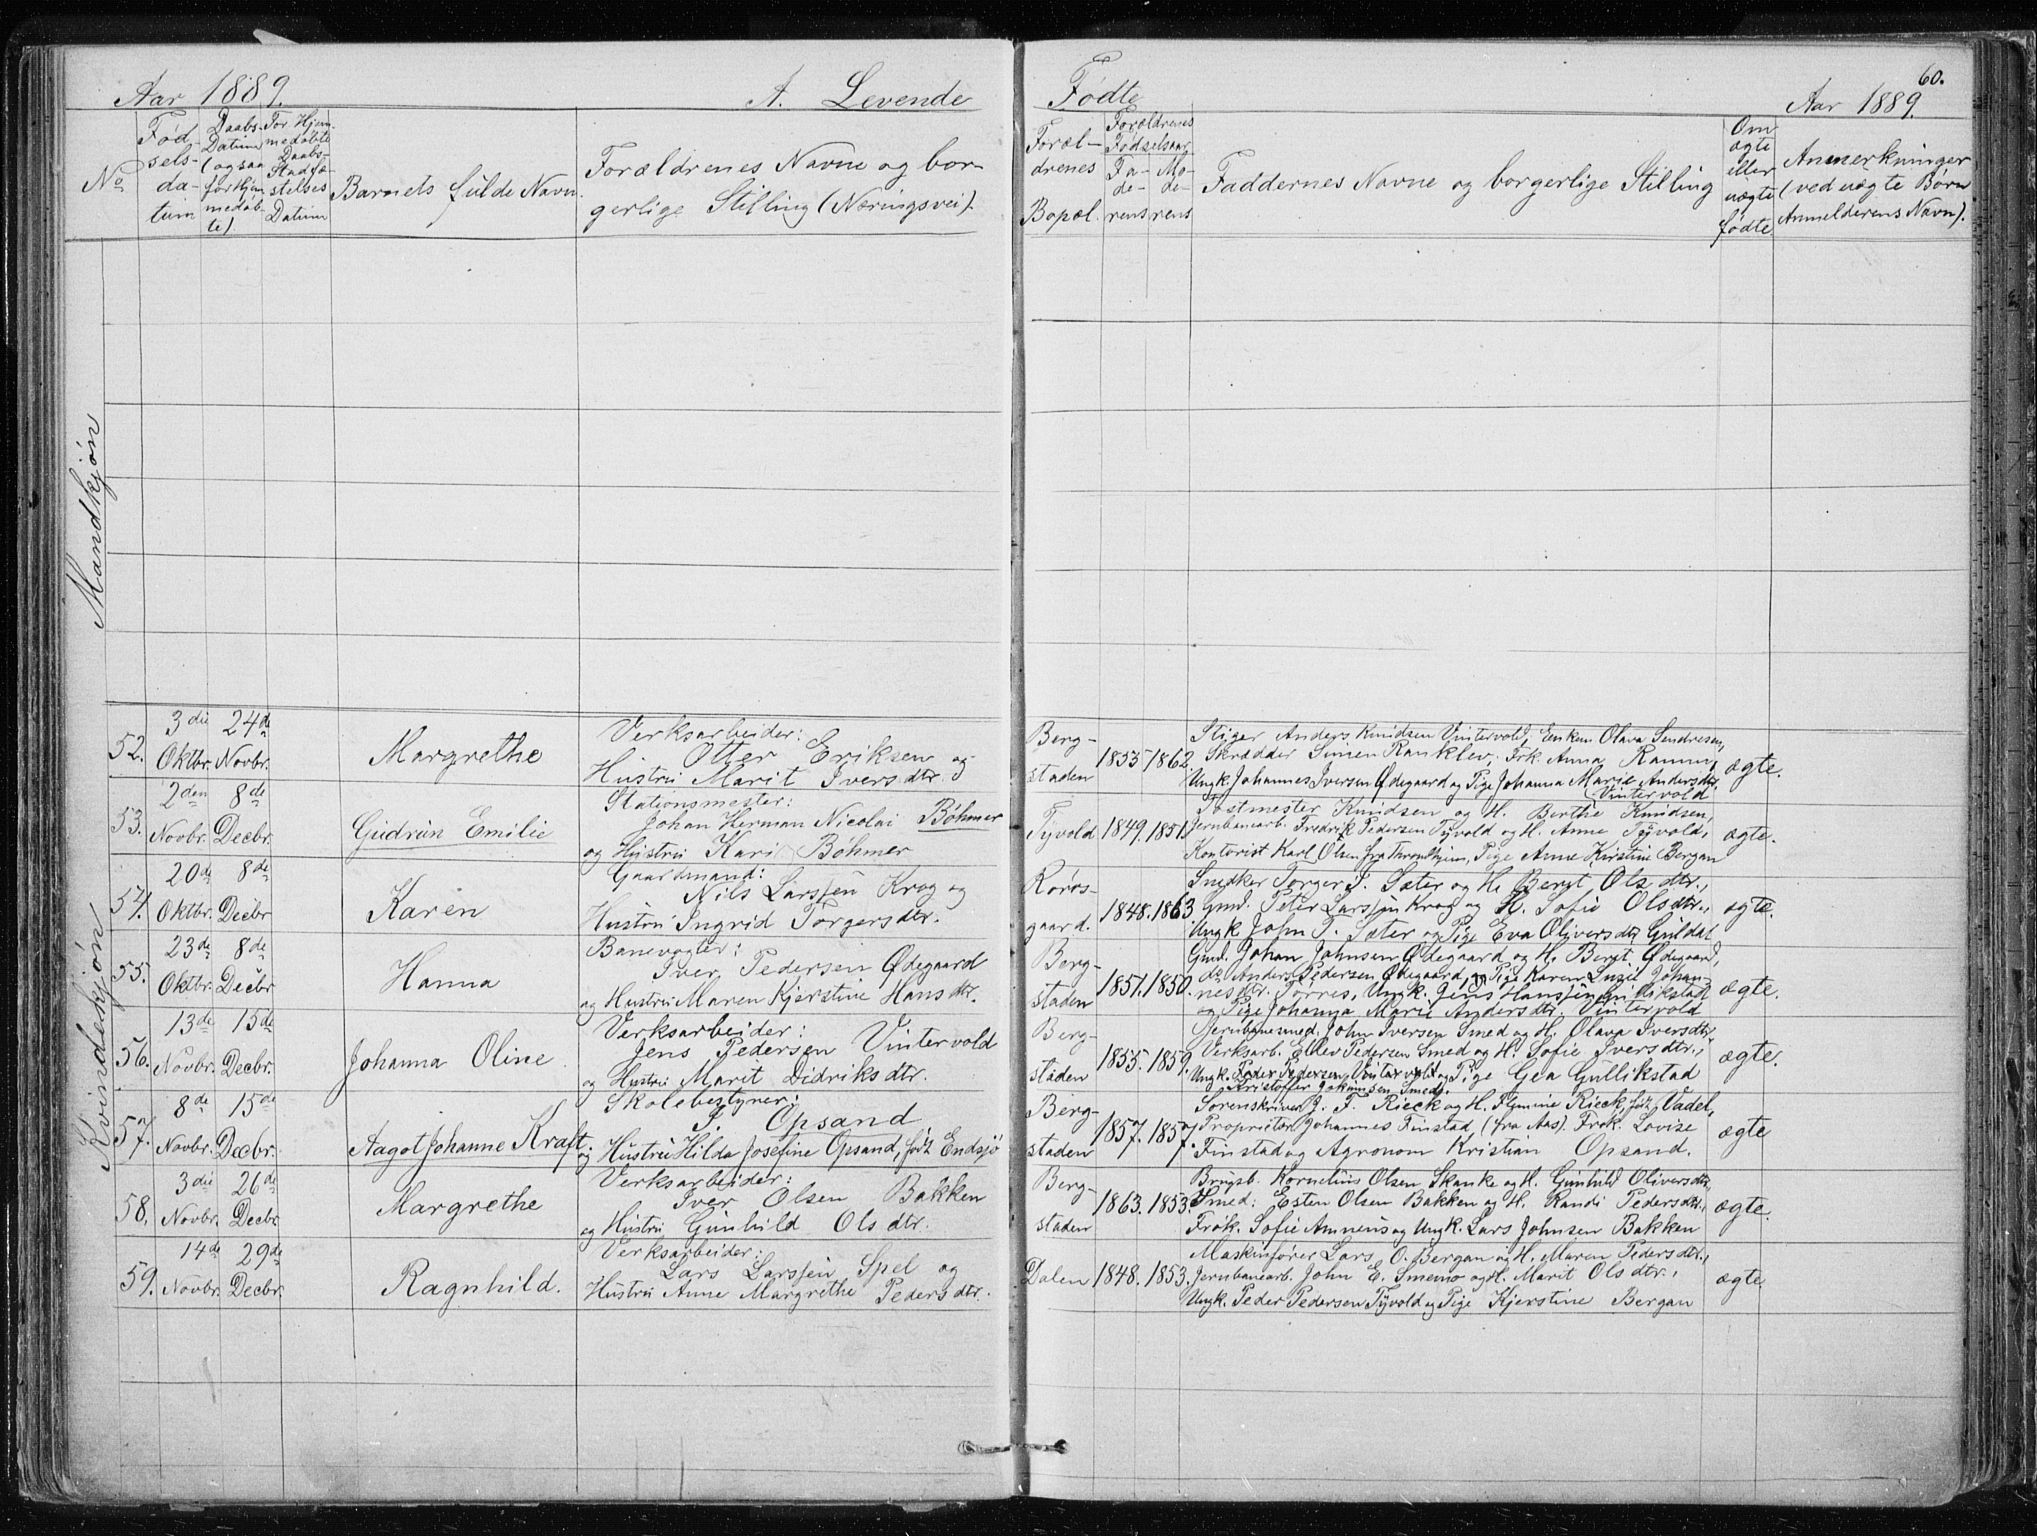 Aar 1889.
A. Levende
Fødte
Aar 1889.
60.
No
Fød-
sels-
da-
tum
Daabs-
Datum
(ogsaa
for Hjem-
medøb-
te)
For Hjem-
medøbte
Daabs-
Stadfæ-
stelses
Datum
Barnets fulde Navn
Forældrenes Navne og bor-
gerlige Stilling (Næringsvei).
Foræl-
drenes
Bopæl.
Forældrenes
Fødselsaar
Fa-
de-
rens
Mo-
de-
rens
Faddernes Navne og borgerlige Stilling
Om
ægte
eller
uægte
fødte
Anmerkninger
(ved uægte Børn
Anmelderens Navn).
Mandkjøn
Kvindekjøn
52.
3die Oktbr.
24de Novbr.
Margrethe
Verksarbeider:
Otter Eriksen og
Hustru Marit Iversdtr.
Berg-
staden
1853
1862
Stiger Anders Knudsen Vintervold, Enken Olava Sendresen,
Skrædder Simen Ranklev, Frk. Anna Ramm,
Ungk. Johannes Iversen Ødegaard og Pige Johanna Marie Andersdtr.
Vintervold
ægte.
53.
2den Novbr.
8de Decbr.
Gudrun Emilie
Stationsmester:
Johan Herman Nicolai Bøhmer
og Hustru Kari Bøhmer
Tyvold
1849.
1851
Postmester Knudsen og H. Berthe Knudsen,
Jernbanearb. Fredrik Pedersen Tyvold og H. Anne Tyvold,
Kontorist Karl Olsen fra Throndhjem, Pige Anne Kirstine Bergan
ægte.
54.
20de Oktbr.
8de Decbr
Karen
Gaardmand:
Nils Larssen Krog og
Hustru Ingrid Torgersdtr.
Røros-
gaard.
1848.
1863
Snedker Torger J. Sæter og H. Bergt Olsdtr.,
Gmd. Peter Larssen Krog og H. Sofie Olsdtr.,
Ungk John T. Sæter og Pige Eva Oliversdtr Guldal
ægte.
55.
23de Oktbr.
8de Decbr
Hanna
Banevogter:
Iver Pedersen Ødegaard
og Hustru Maren Kjerstine Hansdtr.
Berg-
staden
1851.
1850.
Gmd. Johan Johnsen Ødegaard og H. Bergt Ødegaard,
do Anders Pedersen Ødegaard, og Pige Karen Lusie Johan-
nesdtr. Tørres, Ungk. Jens Hanssen Gullikstad
og Pige Johanna Marie Andersdtr. Vintervold
ægte.
56.
13de Novbr.
15de Decbr.
Johanna Oline
Verksarbeider:
Jens Pedersen Vintervold
og Hustru Marit Didriksdtr.
Berg-
staden
1855.
1859.
Jernbanesmed. John Iversen Smed og H. Olava Iversdtr,
Verksarb. Ellev Pedersen Smed og H. Sofie Iversdtr.,
Ungk. Peder Pedersen Vintervold og Pige Gea Gullikstad
Kristoffer Johannsen Smed.
ægte.
57.
8de Novbr.
15de Decbr.
Aagot Johanne Kraft
Skolebestyrer:
S. Opsand
og Hustru Hilda Josefine Opsand, født Endsjø
Berg-
staden
1857.
1857.
Sorenskriver J. F. Rieck og H. Flemine Rieck født Vadel,
Proprietær Johannes Finstad (fra Aas). Frøk. Lovise
Finstad og Agronom Kristian Opsand.
ægte
58.
3die Novbr.
26de Decbr.
Margrethe
Verksarbeider:
Iver Olsen Bakken
og Hustru Gunhild Olsdtr.
Berg-
staden
1863.
1853
Brugsb. Kornelius Olsen Skanke og H. Gunhild Oliversdtr,
Smed: Esten Olsen Bakken og H. Randi Pedersdtr.,
Frøk. Sofie Amneus og Ungk. Lars Johnsen Bakken
ægte.
59.
14de Novbr.
29de Decbr.
Ragnhild.
Verksarbeider:
Lars Larssen Spel og
Hustru Anne Margrethe Pedersdtr.
Dalen
1848.
1853.
Maskinfører Lars O. Bergan og H. Maren Pedersdtr.,
Jernbanearb. John E. Smemo og H. Marit Olsdtr.,
Ungk. Peder Pedersen Tyvold og Pige Kjerstine Bergan
ægte.